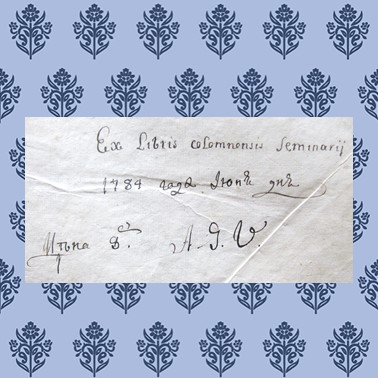 Ex Libris colomnensis seminarij
1784 года Iюня дня
Цѣна в҃. A. G. V.